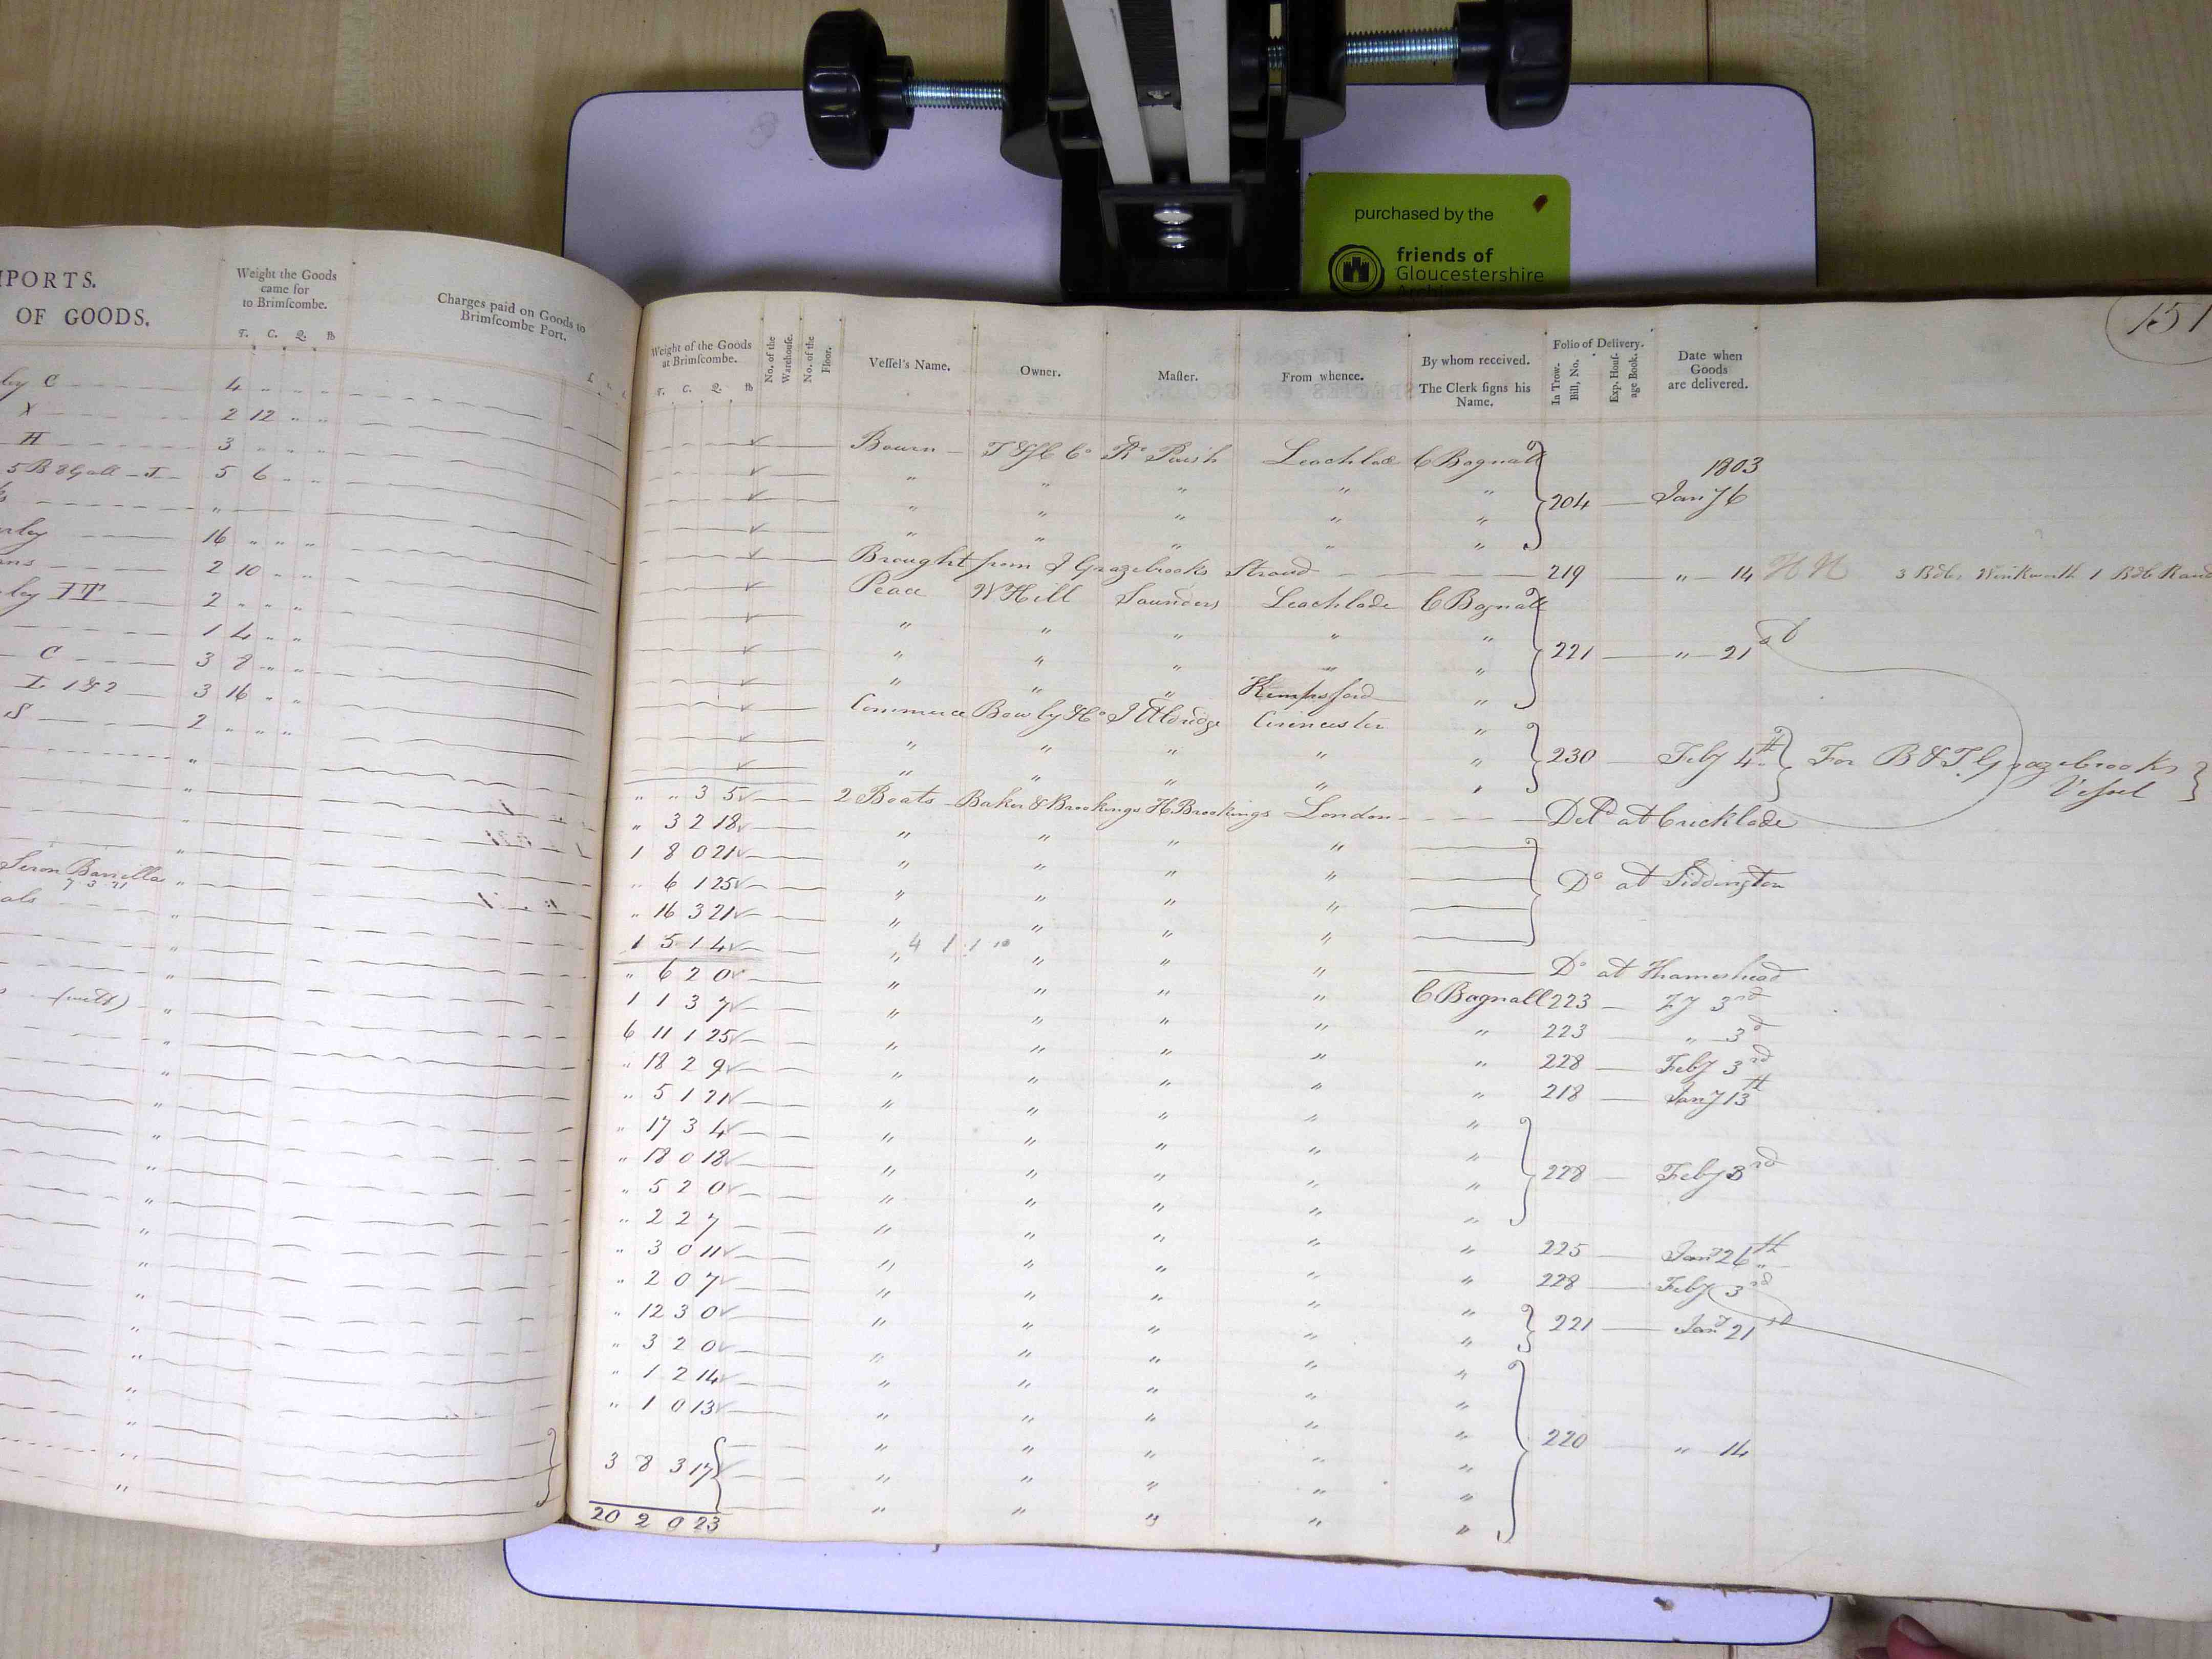 purchased by the
friends of
Gloucestershire
IPORTS.
OF GOODS.
Weight the Goods
came for
to Brimſcombe.
T. C. Q. lb
Charges paid on Goods to
Brimſcombe Port.
ley C 4 " " "
X 2 12 " "
H 3 " " "
5 B & Gall - I 5 6 " "
"
rley 16 " " "
ns 2 10 " "
ley TT 2 " " "
1 4 " "
C 3 8 " "
I. 1 & 2 3 16 " "
S 2 " " "
Seron Barrilla "
7 3 21
als "
(wett) "
151
Weight of the Goods
at Brimſcombe.
T. C. Q. lb
No. of the
Warehouſe.
No. of the
Floor.
Veſſel's Name.
Owner.
Maſter.
From whence.
By whom received.
The Clerk ſigns his
Name.
Folio of Delivery.
In Trow.
Bill, No.
Exp. Houſ-
age Book.
Date when
Goods
are delivered.
Bourn T & S C Co Rd Parish Leachlade C Bagnall
1803
" " " " " 204 Jany 6
" " " " "
" " " " "
Brought from J Grazebrooks Stroud 219 " 14 HN 3 Bdls Winkworth 1 Bdl
Peace W Hill Saunders Leachlade C Bagnall
" " " " "
" " " " " 221 " 21st
" " " Kempsford "
Commerce Bowly & Co J Aldridge Cirencester "
" " " " " 230 Feby 4th For B & T Grazebrooks
Vessel
" " " " "
" " 3 5 2 Boats Baker & Brookings H Brookings London Deld at Cricklade
" 3 2 18 " " " "
1 8 0 21 " " " " Do at Siddington
" 6 1 25 " " " "
" 16 3 21 " " " "
1 5 1 4 " " " " Do at Thameshead
4 1 1 10
" 6 2 0 " " " " C Bagnall 223 Fy 3rd
1 1 3 7 " " " " " 223 " 3d
6 11 1 25 " " " " " 228 Feby 3rd
" 18 2 9 " " " " " 218 Jany 13th
" 5 1 21 " " " " "
" 17 3 4 " " " " "
" 18 0 18 " " " " " 228 Feby 3rd
" 5 2 0 " " " " "
" 2 2 7 " " " " " 225 Jany 26th
" 3 0 11 " " " " " 228 Feby 3rd
" 2 0 7 " " " " "
" 12 3 0 " " " " " 221 Jany 21st
" 3 2 0 " " " " "
" 1 2 14 " " " " "
" 1 0 13 " " " " " 220 " 14
3 8 3 17 " " " " "
20 2 0 23 " " " " "